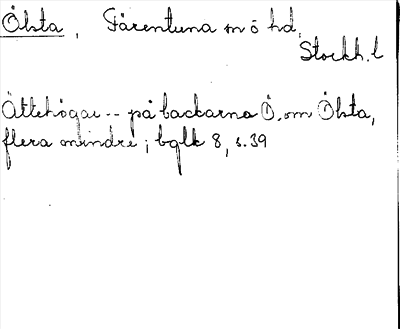 Ölsta, Färentuna sn ö hd,
Stockh. l
Ättehögar -- på backarna Ö. om Ölsta,
flera mindre; bglk 8, s. 39